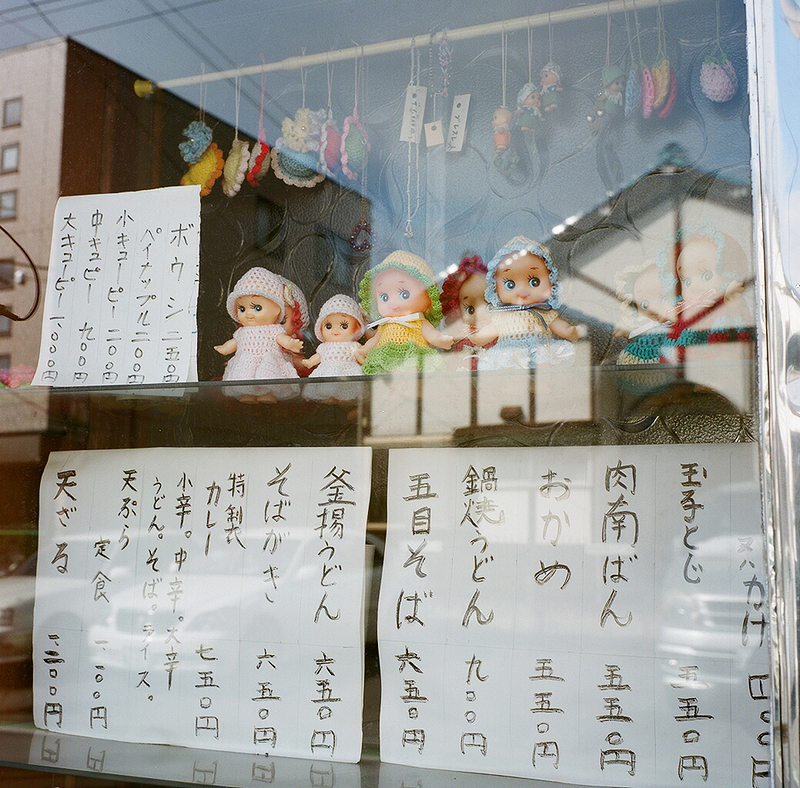 ボウシ二五〇円
パイナップル二〇〇円
小キューピー二〇〇円
中キュピー九〇〇円
大キューピー一、〇〇〇円
玉子とじ五五〇円
肉南ばん五五〇円
おかめ五五〇円
鍋焼うどん九〇〇円
五目そば六五〇円
釜揚うどん六五〇円
そばがき六五〇円
特製
カレー七五〇円
小辛。中辛。大辛
うどん。そば。ライス。
天ぷら定食一、〇〇円
天ざる